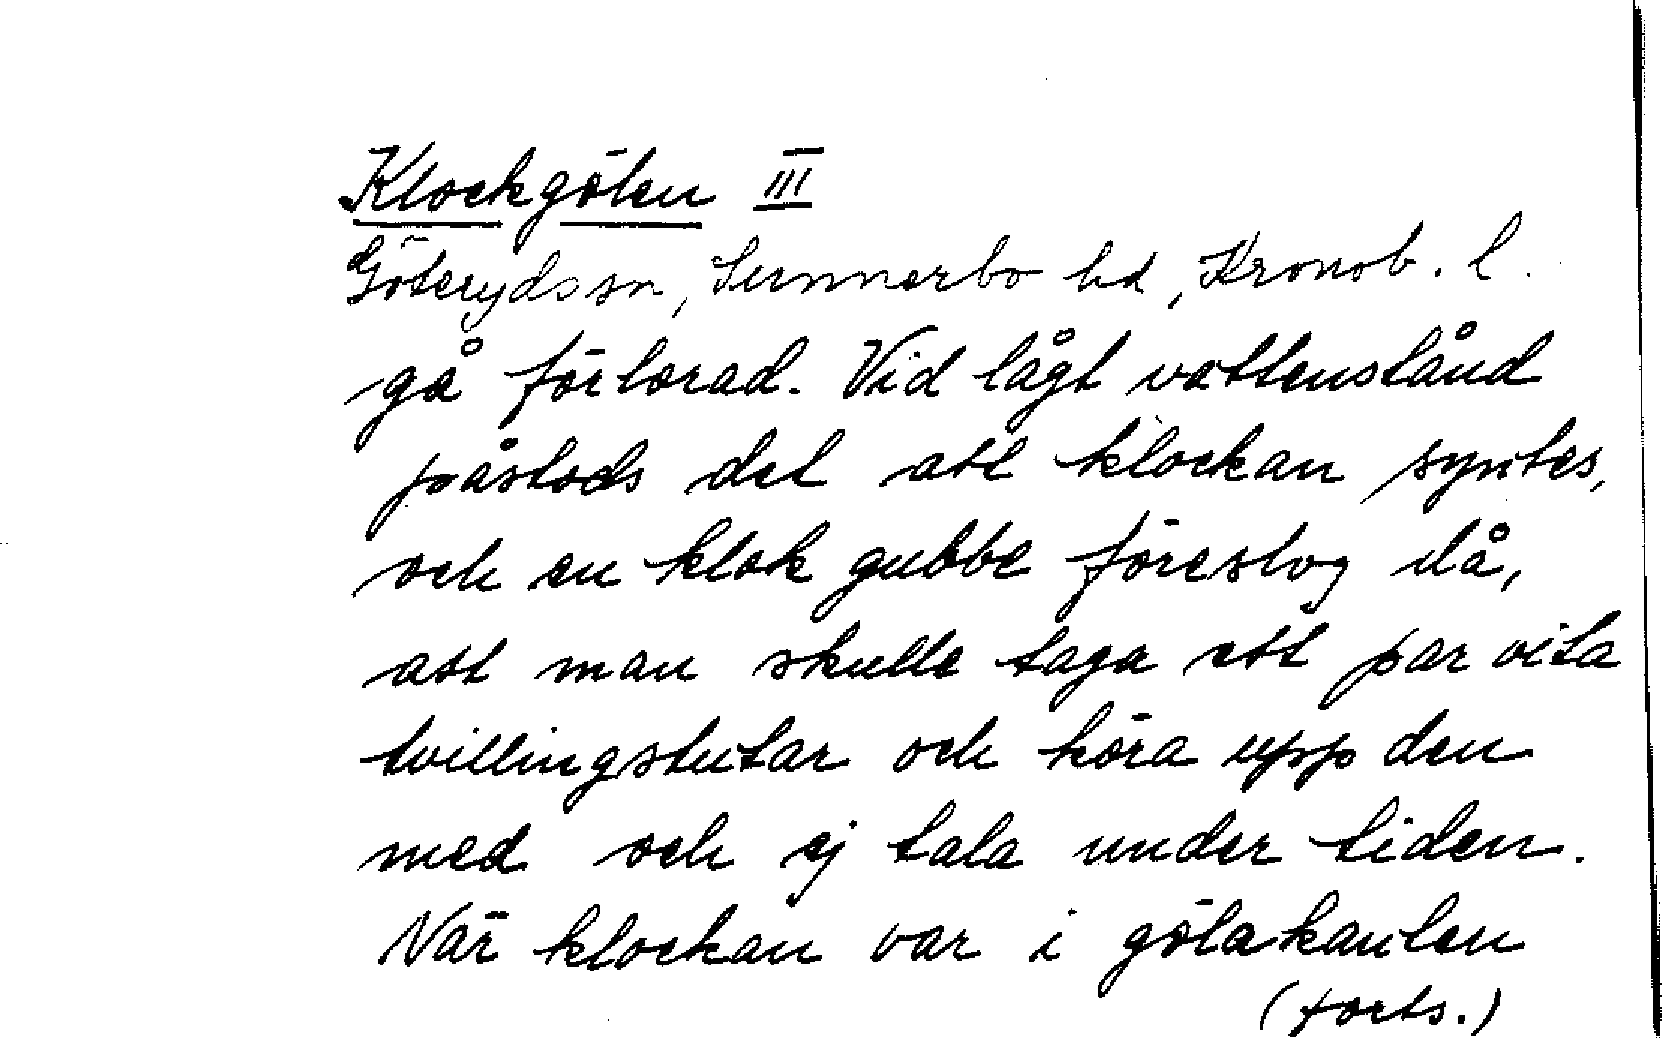 Klockgölen III
Göteryds sn, Sunnerbo hd, Kronob. l.
gå förlorad. Vid lågt vattenstånd
påstods det att klockan syntes,
och en klok gubbe föreslog då,
att man skulle taga ett par vita
tvillingstutar och köra upp den
med och ej tala under tiden.
När klockan var i gölakanten
(forts.)